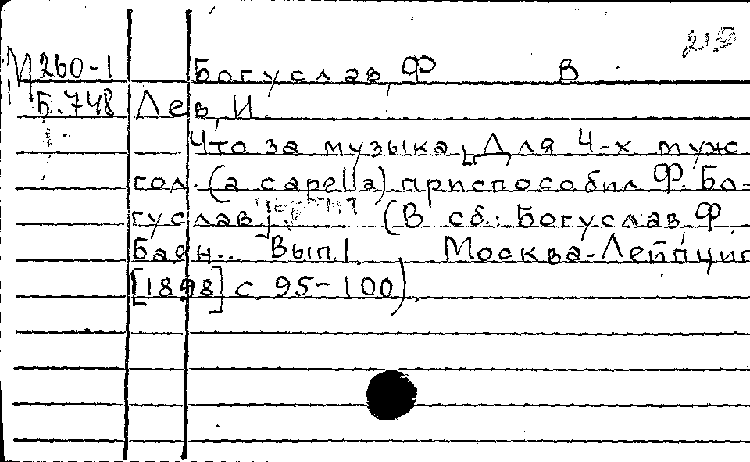 М 260-1 Богуслав, Ф В
Б.748 Лев, И.
Что за музыка. [Для 4-х муж
гол. (a capella) приспособил Ф. Бо-
гуслав] (В сб.: Богуслав, Ф
Баян. Вып 1. Москва-Лейпциг
[1898] с 95-100)